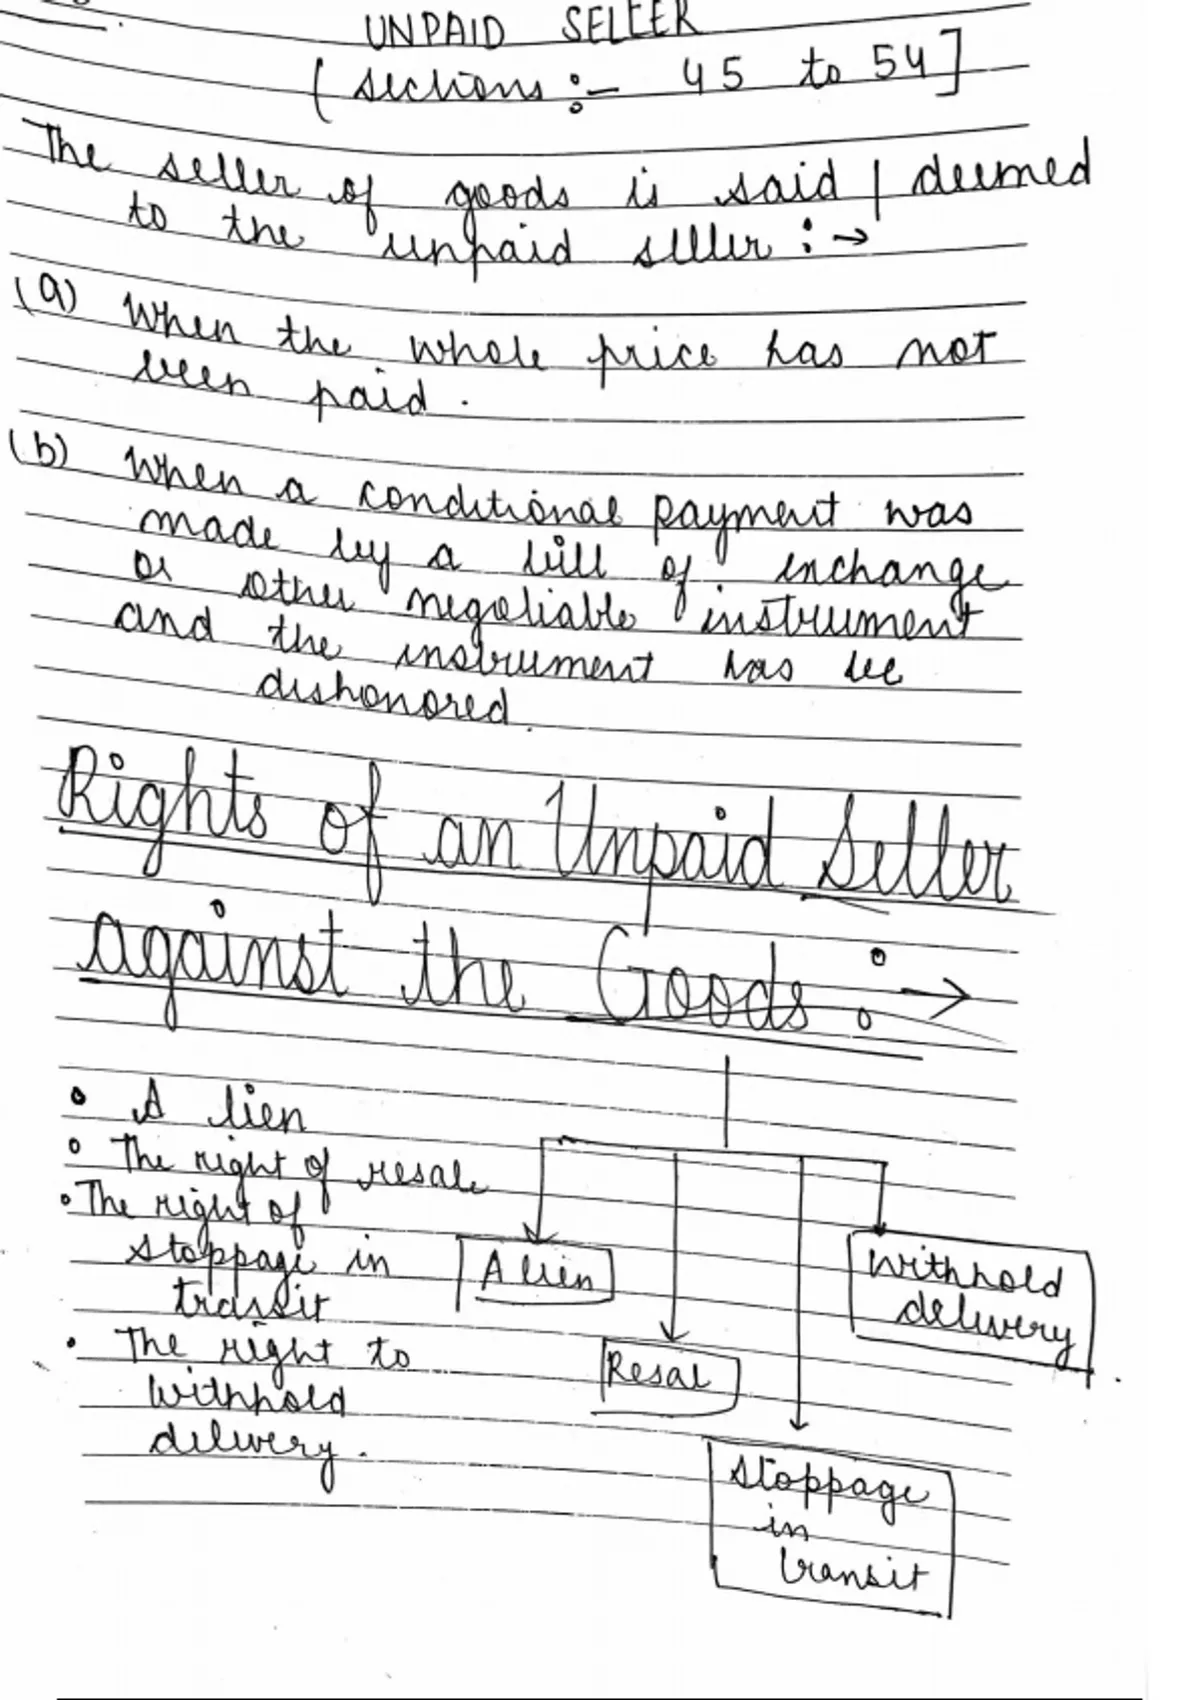 UNPAID SELLER
( sections :- 45 to 54 ]
The seller of goods is said / deemed
to the unpaid seller :→
(a) When the whole price has not
been paid.
(b) When a conditional payment was
made by a bill of exchange
or other negotiable instrument
and the instrument has be
dishonored.
Rights of an Unpaid Seller
against the Goods :→
• A lien
• The right of resale
• The right of
stoppage in
transit
• The right to
withhold
delivery.
A lien
Resal
Stoppage
in
transit
Withhold
delivery